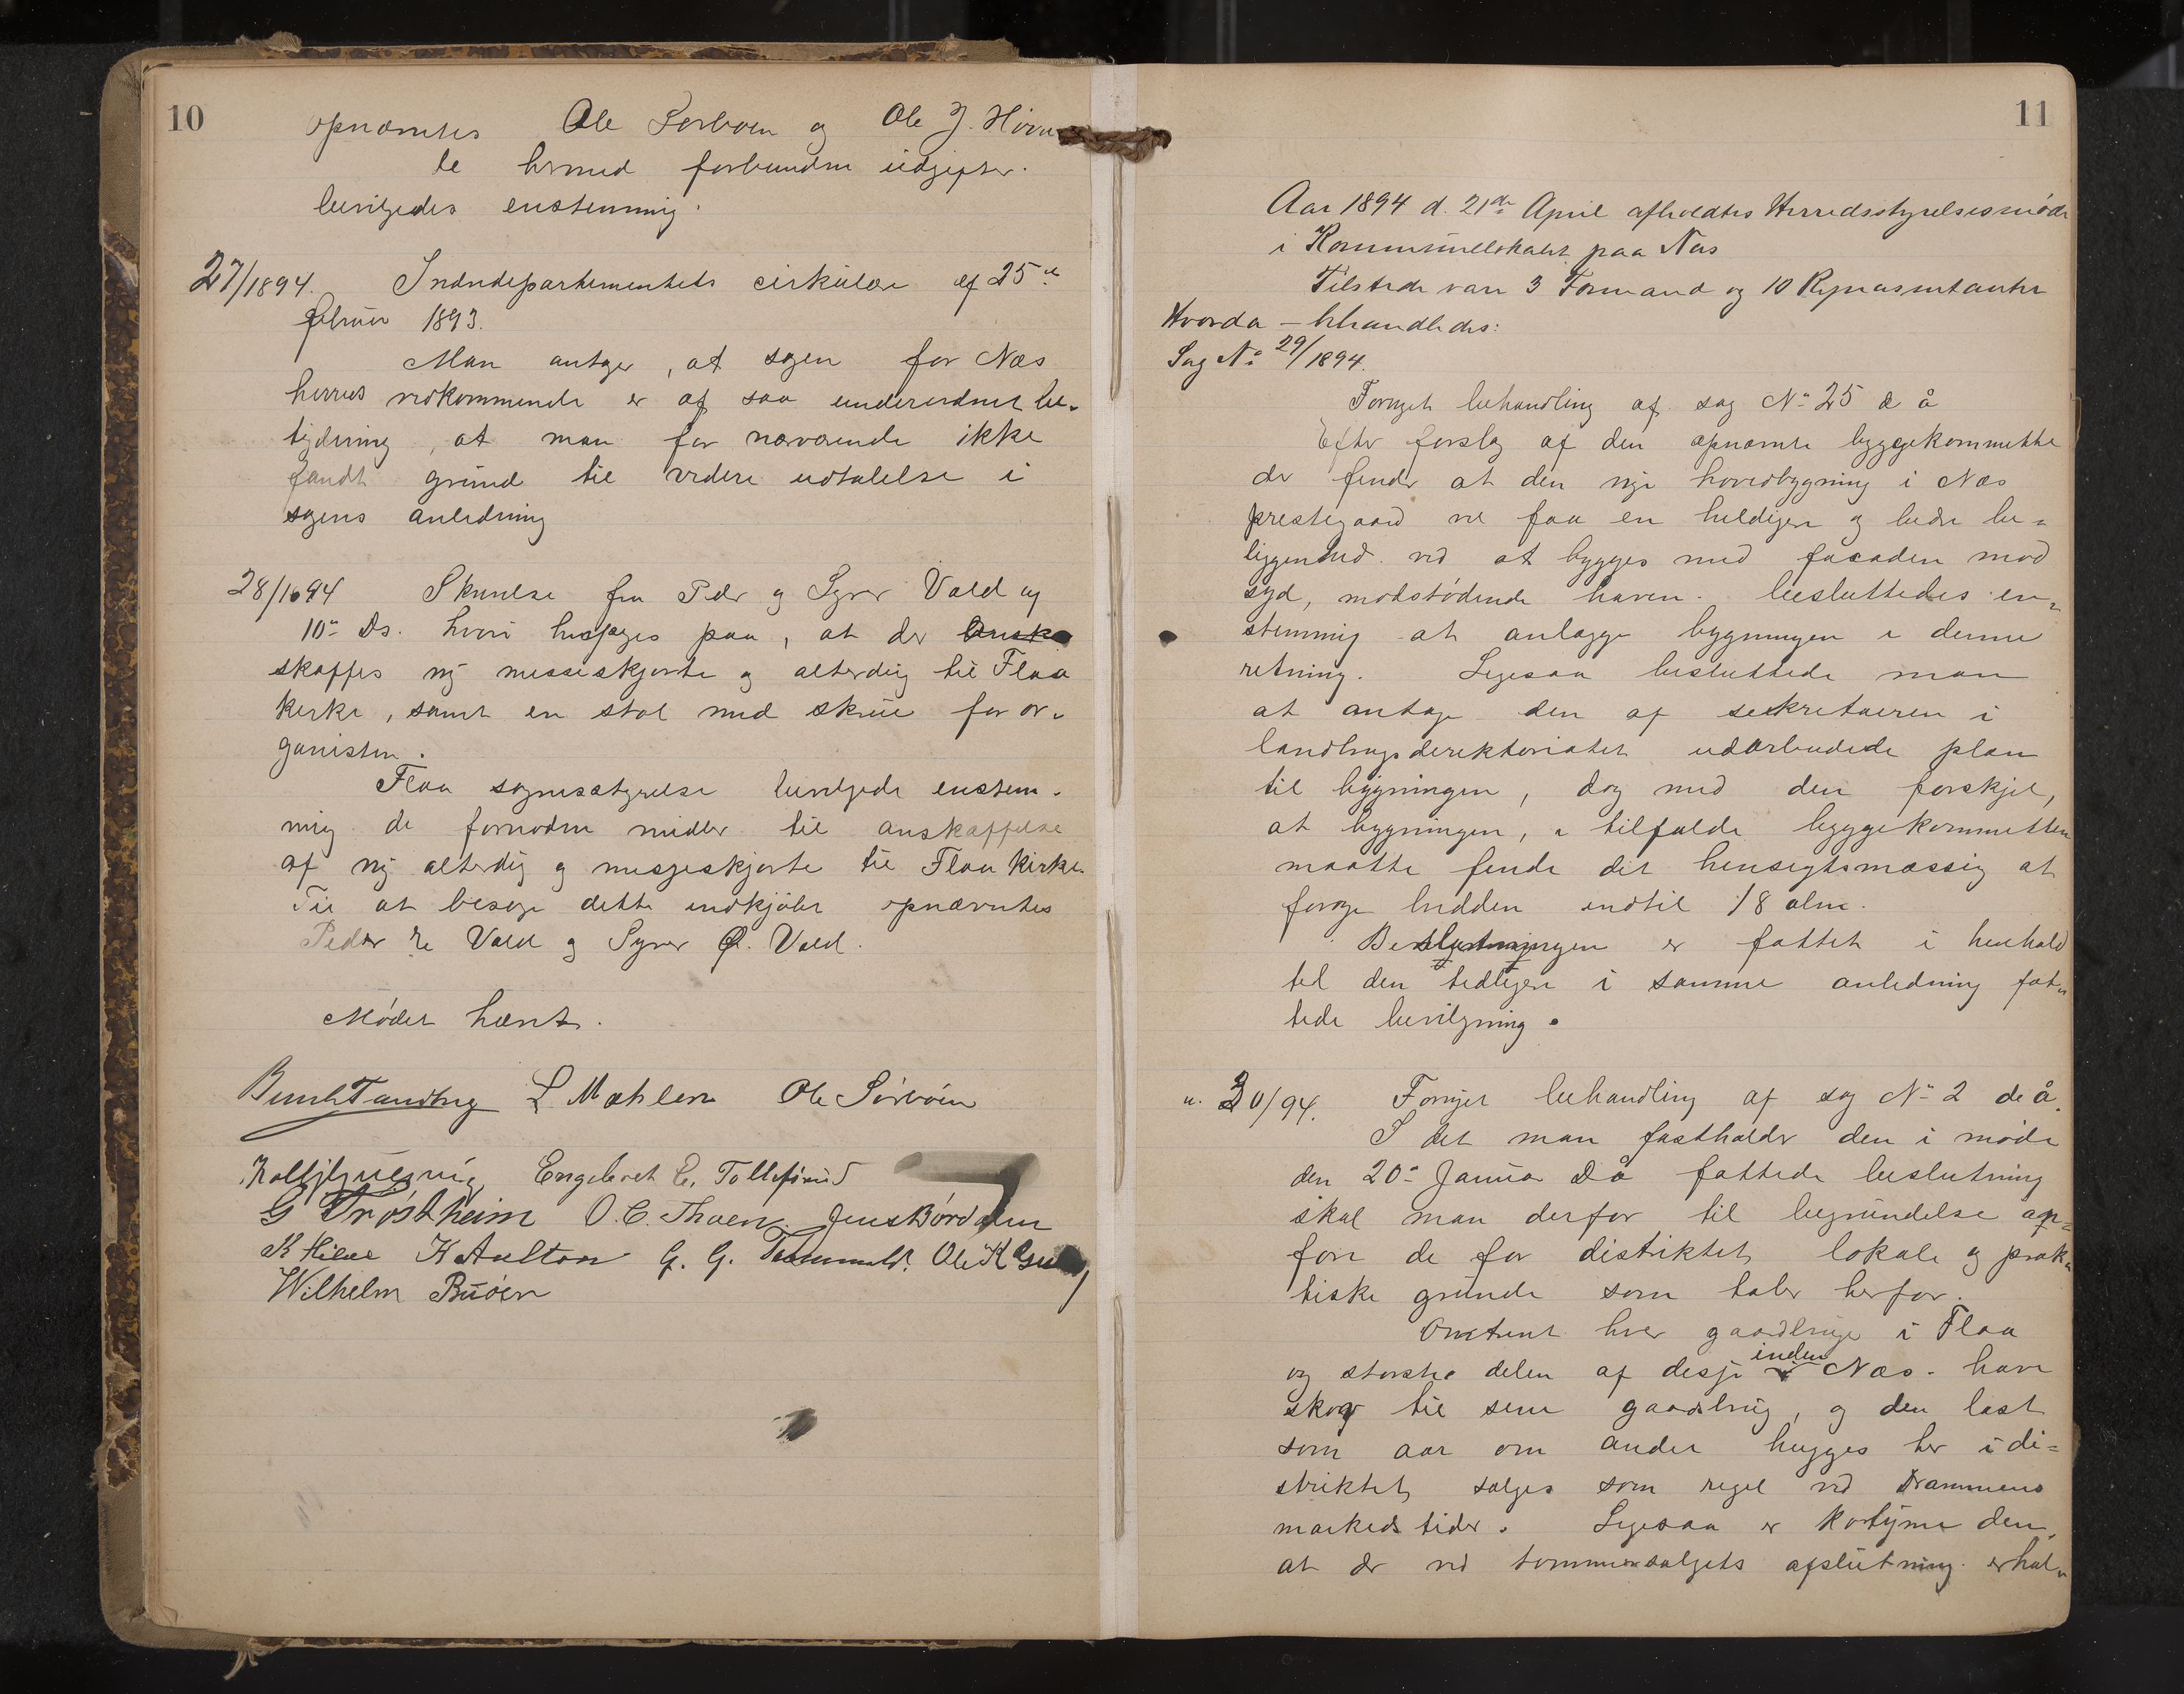 10
opnævntes Ole Sørbøen og Ole J.
De hermed forbundne udgifter
bevilgedes enstemmig.
27/1894. Indredepartementets cirkulær af 25de
februar 1893.
Man antager, at sagen for Næs
herreds vedkommende er af saa underordnet be-
tydning, at man for nærværende ikke
fandt grund til videre udtalelse i
sagens anledning
28/1894 Skrivelse fra Peder og Syver Vold af
10de Ds. hvori paa, at der
skaffes ny messeskjorte og alterdug til Flaa
kirke, samt en stol med skrue for or-
ganisten.
Flaa sognestyrelse bevilgede enstem-
mig de fornødne midler til anskaffelse
af ny alterdug og messeskjorte til Flaa kirke.
Til at besørge dette indkjøbt opnævntes
Peder Vold og Syver O. Vold.
Mødet hævet.
L. Mæhlen Ole Sørbøen
Engebret E. Tollefsrud
G Trøstheim O. C. Thoen. Jens Børdalen
K Hilde K Aulton G. G. Ole K
Wilhelm Buøen
11
Aar 1894 d. 21de April afholdtes Herredsstyrelsesmøde
i Kommunelokalet paa Næs
Tilstede vare 3 Formænd og 10 Repræsentanter
Hvorda – behandledes:
Sag No 29/1894.
Fornyet behandling af sag No 25 d å
Efter forslag af den opnævnte byggekommitte
der finder at den nye hovedbygning i Næs
prestegaard vil faa en heldigere og bedre be-
liggenhed ved at bygges med facaden mod
syd, modstødende haven. besluttedes en-
stemmig at anlægge bygningen i denne
retning. Ligesaa besluttede man
at antage den af sekretæren i
landbrugsderektoriatet udarbeidede plan
til bygningen, dog med den forskjel,
at bygningen, i tilfælde byggekommitten
maatte finde det hensigtsmæssig at
forøge bredden indtil 18 alen.
Beslutningen er fattet i henhold
til den tidligere i samme anledning fat-
tede bevilgning.
u. 30/94. Fornyet behandling af sag No 2 de å.
I det man fastholder den i møde
den 20de Januar D å fattede beslutning
skal man derfor til begrundelse an-
føre de for distriktet lokale og prak-
tiske grunde som taler herfor.
Omtrent hver gaardbruger i Flaa
og største delen af desse inden Næs. have
skog til sine gaardsbrug, og den last
som aar om andet hugges her i di-
striktet sælges som regel ved Drammens
markeds tider. Ligesaa er kotyme den,
at der ved tømmersalgets afslutning erhol-